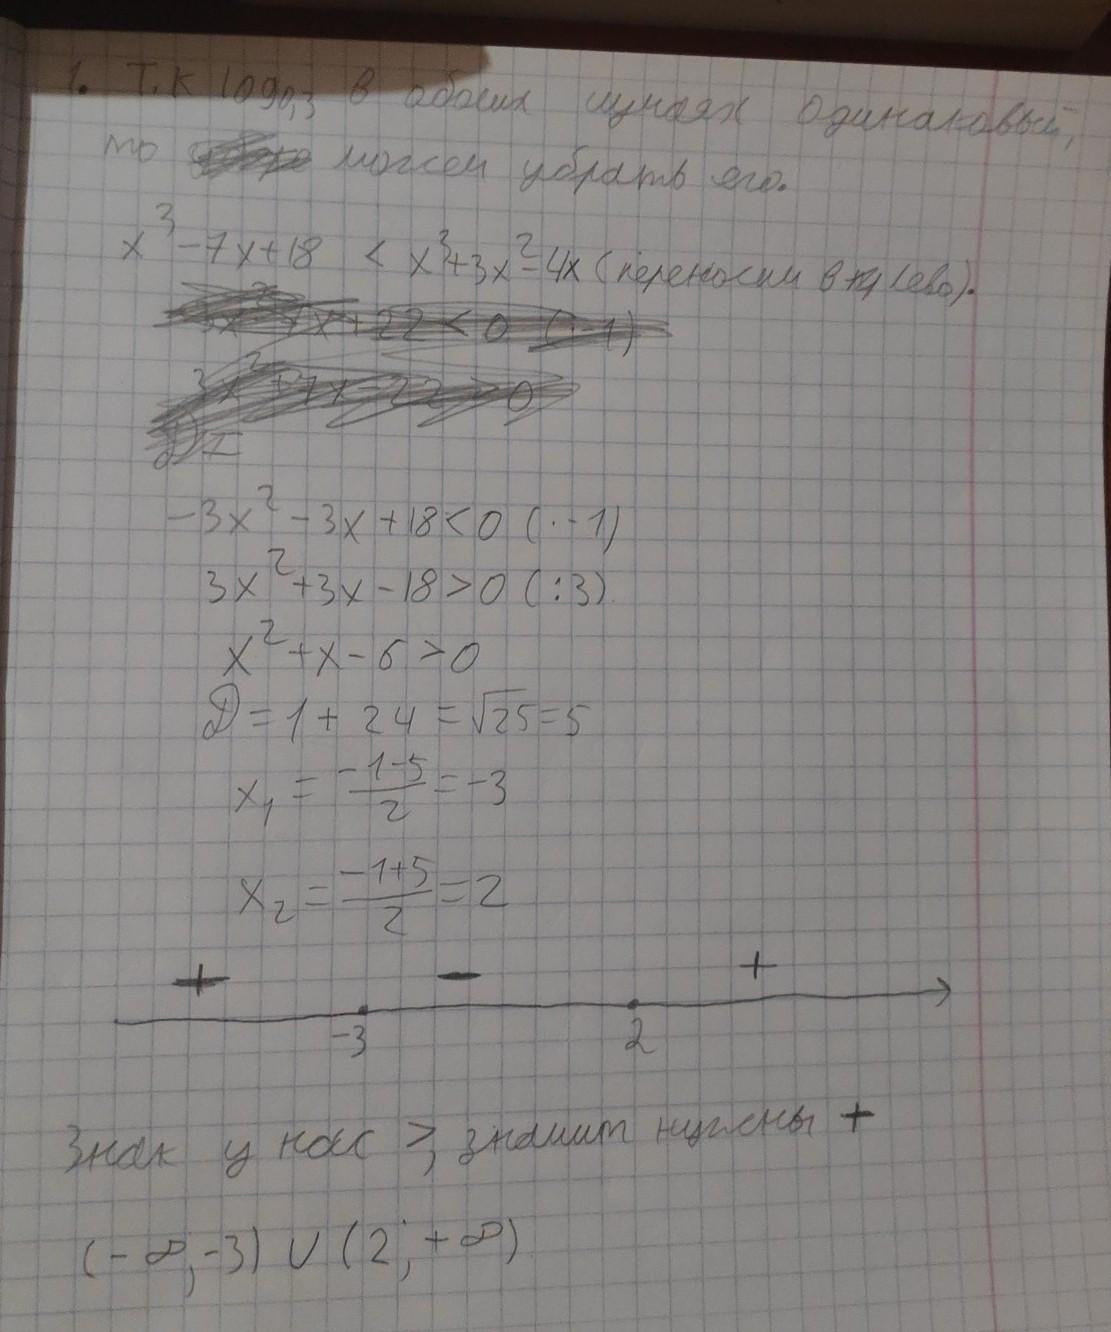 1. Т.К log₀,₃ в обоих случаях одинаковый,
то можем убрать его.
x³ - 7x + 18 < x³ + 3x² - 4x (переносим влево).
-3x² - 3x + 18 < 0 (· -1)
3x² + 3x - 18 > 0 (:3)
x² + x - 6 > 0
D = 1 + 24 = √25 = 5
x₁ = (-1-5)/2 = -3
x₂ = (-1+5)/2 = 2
+ - +
-3 2
Знак у нас >, значит нужны +
(-∞, -3) ∪ (2; +∞)